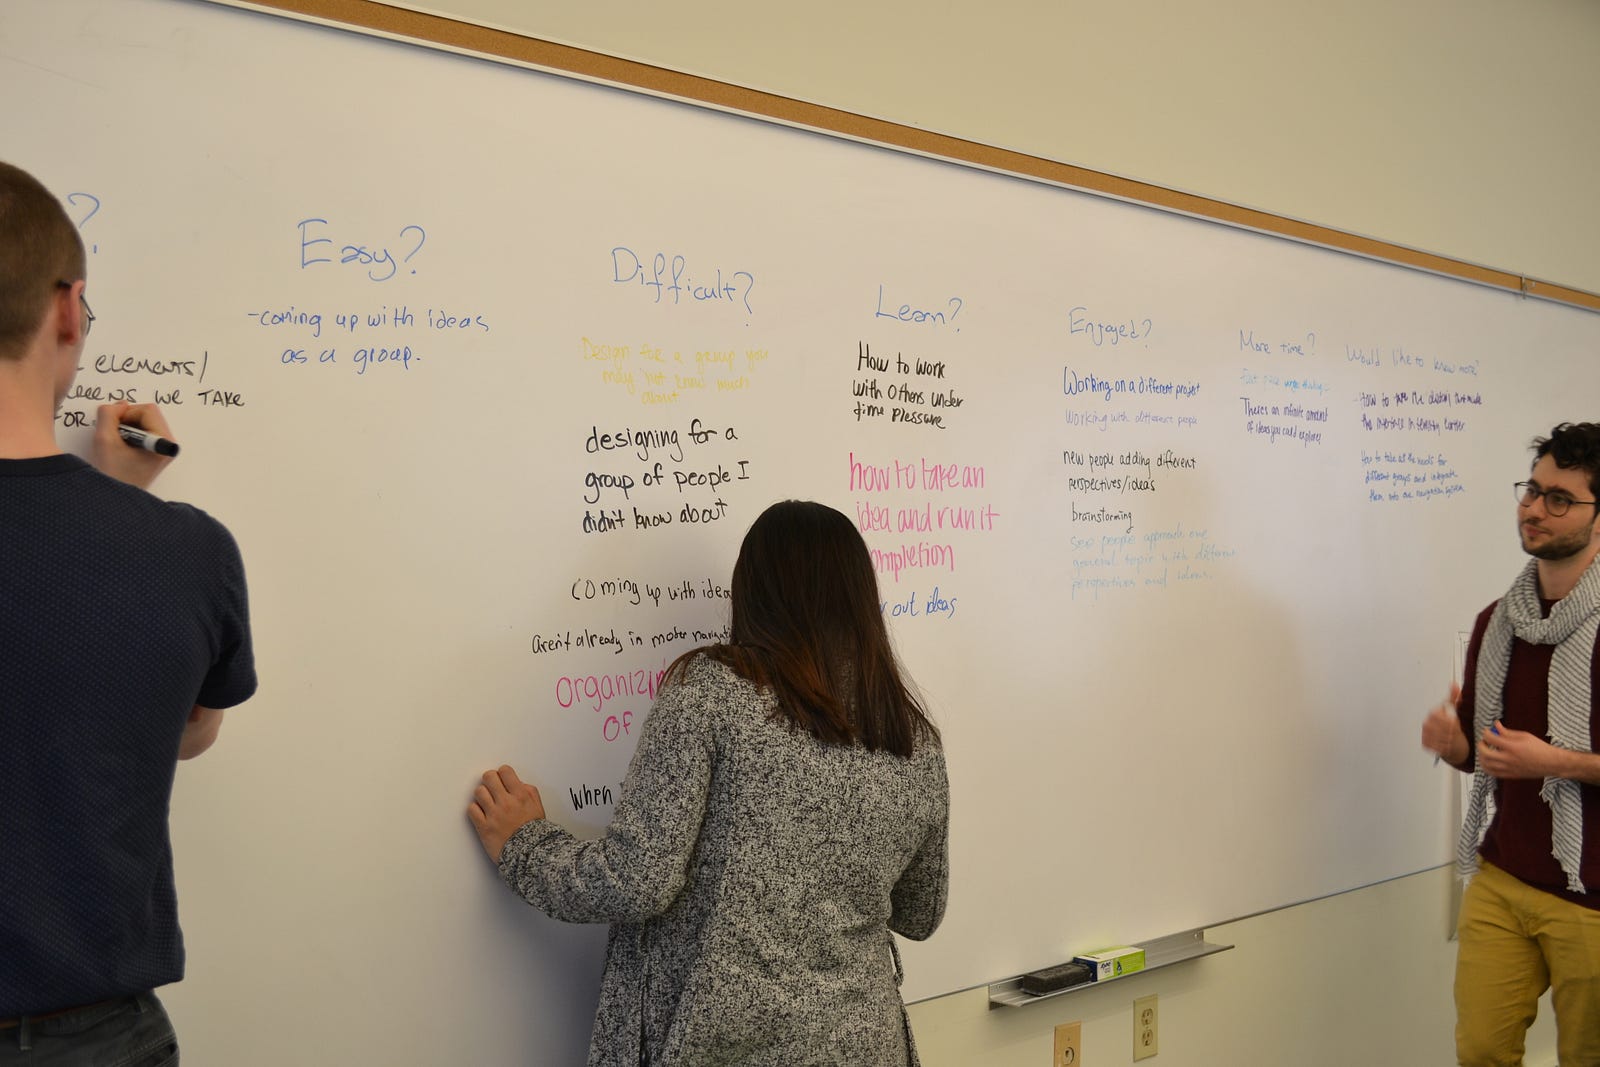 ?
ELEMENTS/
WE TAKE
FOR
Easy?
-coming up with ideas
as a group.
Difficult?
Design for a group you
may not know much
about
designing for a
group of people I
didn't know about
Coming up with ideas
Aren't already in
organizin
OF
when
Learn?
How to work
with Others under
time pleasure
how to take an
idea and run it
ompletion
out ideas
Enjoyed?
Working on a different project
Working with different people
new people adding different
perspectives/ideas
brainstorming
See people approach one
general topic with different
perspectives and
More time?
There's an infinite amount
of ideas you could explore
Would like to know more?
How to take the
the interface in
How to take all the needs for
different groups and integrate
them into one navigation system